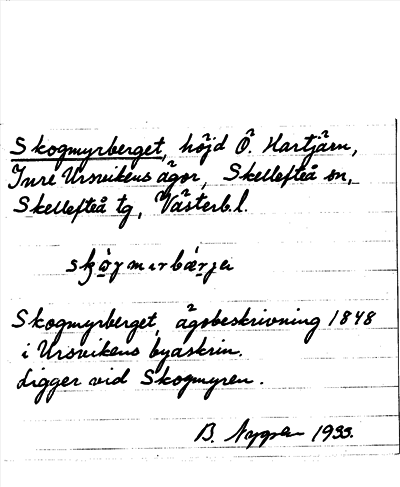 Skogmyrberget, höjd Ö. Hartjärn,
Inre Ursvikens ägor, Skellefteå sn,
Skellefteå tg, Västerb. l.
Skogmyrberget, ägobeskrivning 1848
i Ursvikens byaskrin.
Ligger vid Skogmyren.
B. Nygren 1933.